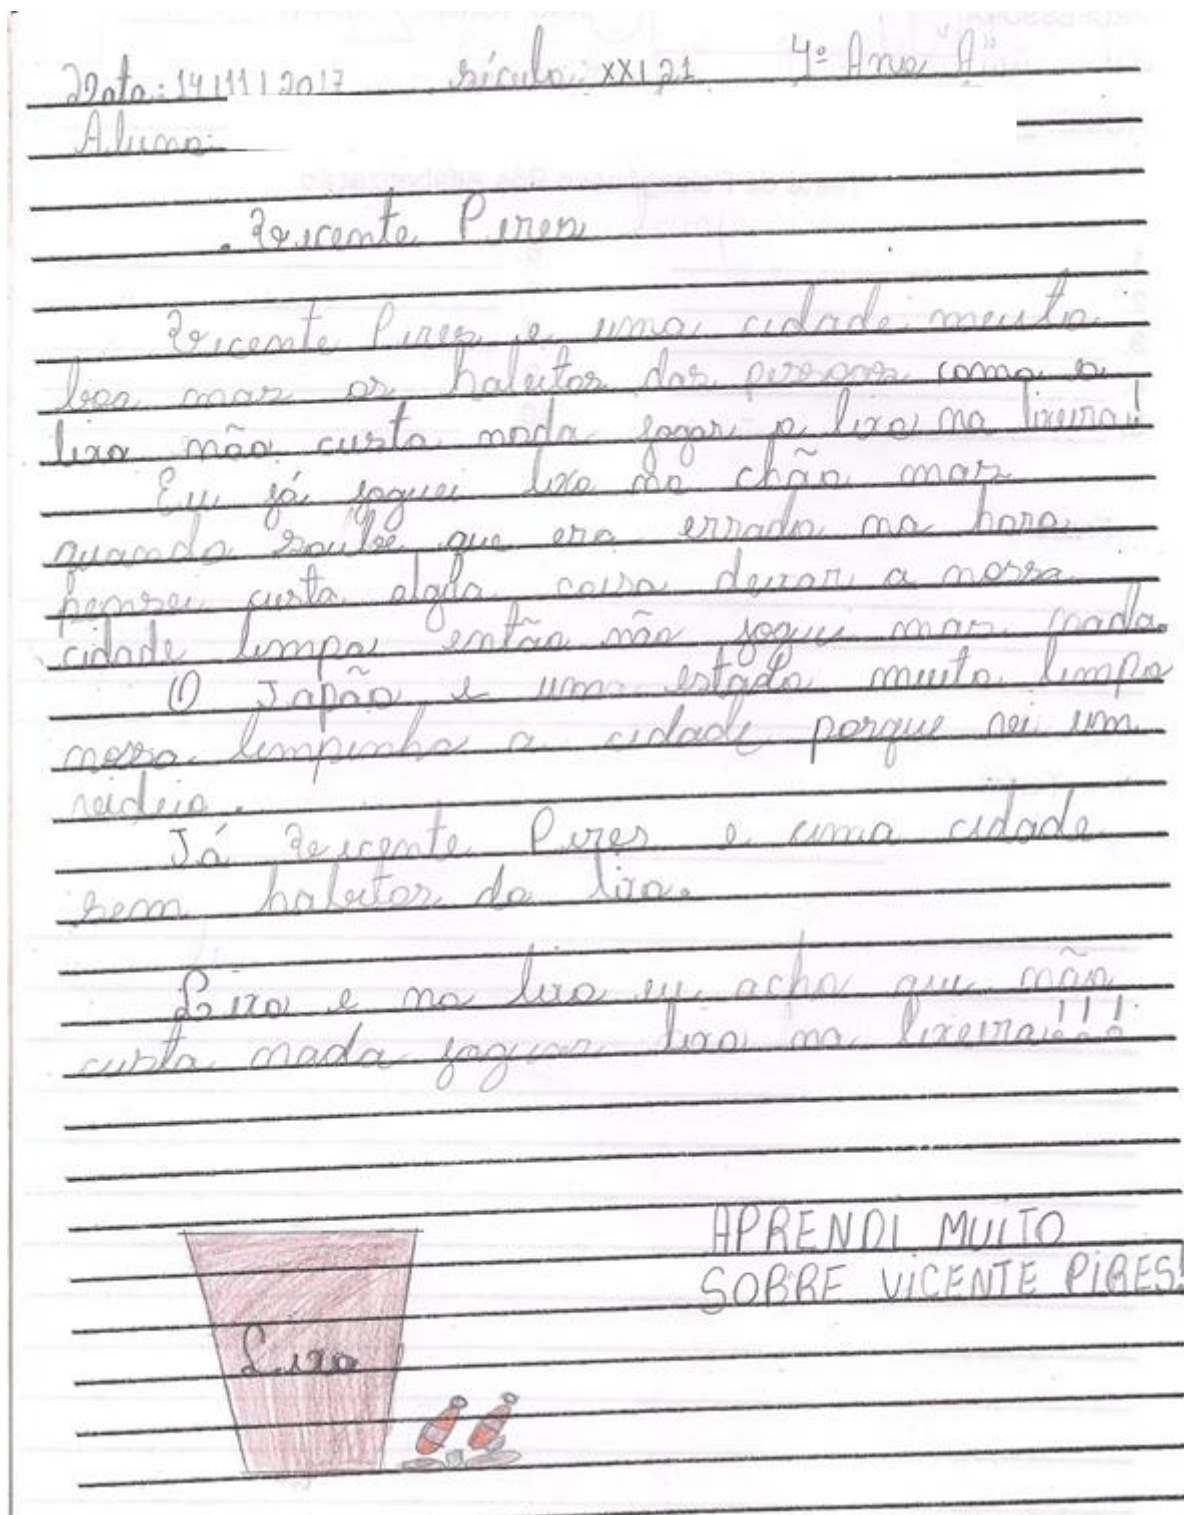 Data: 14/11/2017 século: XXI 21 4º Ano "A"
Aluno:
Vicente Pires
Vicente Pires e uma cidade muito
boa mas os habitos das pessoas como o
lixo não custa nada jogar o lixo na lixeira!
Eu já joguei lixo no chão mas
quando soube que era errado na hora
pensei custa algũa coisa deixar a nossa
cidade limpa então não joguei mas nada.
O Japão e uma estado muito limpo
nossa limpinha a cidade porque vi um
vidio.
Já Vicente Pires e uma cidade
sem habitos do lixo.
Lixo e no lixo eu acho que não
custa nada joguar lixo na lixeira!!!
APRENDI MUITO
SOBRE VICENTE PIRES!
Lixo